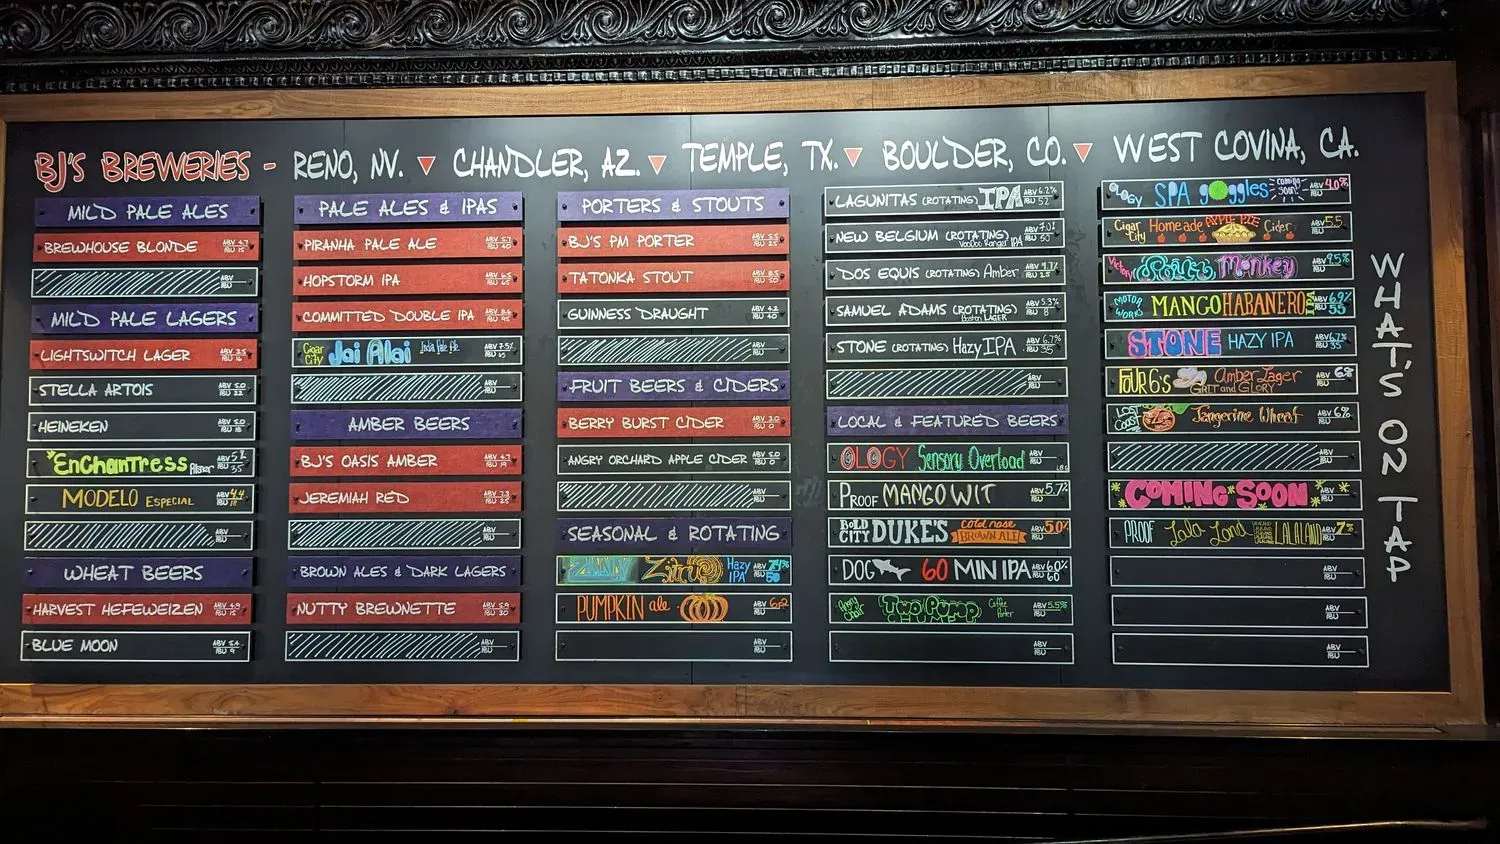 BJ'S BREWERIES - RENO, NV. CHANDLER, AZ. TEMPLE, TX. BOULDER, CO. WEST COVINA, CA.
MILD PALE ALES
BREWHOUSE BLONDE ABV 4.7 IBU 15
ABV IBU
MILD PALE LAGERS
LIGHTSWITCH LAGER ABV 3.5 IBU 16
STELLA ARTOIS ABV 5.0 IBU 22
HEINEKEN ABV 5.0 IBU 18
EnChanTress Pilsner ABV 5% IBU 35
MODELO ESPECIAL ABV 4.4 IBU 18
ABV IBU
WHEAT BEERS
HARVEST HEFEWEIZEN ABV 4.9 IBU 15
BLUE MOON ABV 5.4 IBU 9
PALE ALES & IPAS
PIRANHA PALE ALE ABV 5.7 IBU 40
HOPSTORM IPA ABV 6.5 IBU 65
COMMITTED DOUBLE IPA ABV IBU
Cigar City Jai Alai India Pale Ale ABV 7.5% IBU
ABV IBU
AMBER BEERS
BJ'S OASIS AMBER ABV 4.7 IBU 19
JEREMIAH RED ABV 7.3 IBU 25
ABV IBU
BROWN ALES & DARK LAGERS
NUTTY BREWNETTE ABV 5.9 IBU 30
ABV IBU
PORTERS & STOUTS
BJ'S PM PORTER ABV 5.5 IBU 25
TATONKA STOUT ABV 8.5 IBU 50
GUINNESS DRAUGHT ABV 4.2 IBU 40
ABV IBU
FRUIT BEERS & CIDERS
BERRY BURST CIDER ABV IBU 0
ANGRY ORCHARD APPLE CIDER ABV 5.0 IBU 0
ABV IBU
SEASONAL & ROTATING
Hazy IPA ABV 7.4% IBU 50
PUMPKIN ale ABV IBU
ABV IBU
LAGUNITAS (ROTATING) IPA ABV 6.2% IBU 52
NEW BELGIUM (ROTATING) VooDoo Ranger IPA ABV 7.0% IBU 50
DOS EQUIS (ROTATING) Amber ABV 4.7% IBU 25
SAMUEL ADAMS (ROTATING) Boston LAGER ABV 5.3% IBU 8
STONE (ROTATING) Hazy IPA ABV 6.7% IBU 35
ABV IBU
LOCAL & FEATURED BEERS
OLOGY Sensory Overload ABV IBU
PROOF MANGO WIT ABV 5.7% IBU
BOLD CITY DUKE'S cold nose BROWN ALE ABV 5.0% IBU
DOG 60 MIN IPA ABV 6.0% IBU 60
Angry Chair TWO PUMP CHUMP Coffee Porter ABV 5.5% IBU
ABV IBU
OLOGY SPA goggles coming soon! ABV 4.0% IBU
Cigar City Homemade APPLE PIE Cider ABV 5.5 IBU
Victory Sour Monkey ABV 9.5% IBU
MOTOR WORKS MANGO HABANERO IPA ABV 6.9% IBU 55
STONE HAZY IPA ABV 6.7% IBU 35
FOUR 6's Amber Lager GRIT and GLORY ABV 6% IBU
LOST COAST Tangerine Wheat ABV 6% IBU
ABV IBU
COMING SOON ABV IBU
PROOF LaLa Land LALALAND ABV 7% IBU
ABV IBU
ABV IBU
ABV IBU
WHAT'S ON TAP